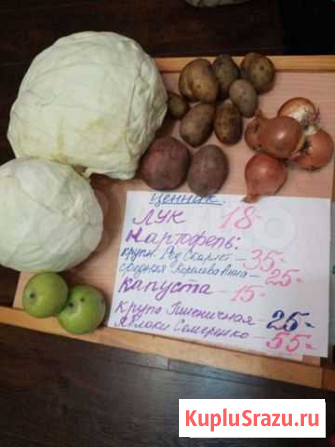 Ценник:
Лук 18-
Картофель:
крупн. Ред Скарлет - 35-
средняя Королева Анна - 25-
Капуста - 15-
Крупа Пшеничная - 25-
Яблоки Семеринко - 55-
KupluSrazu.ru